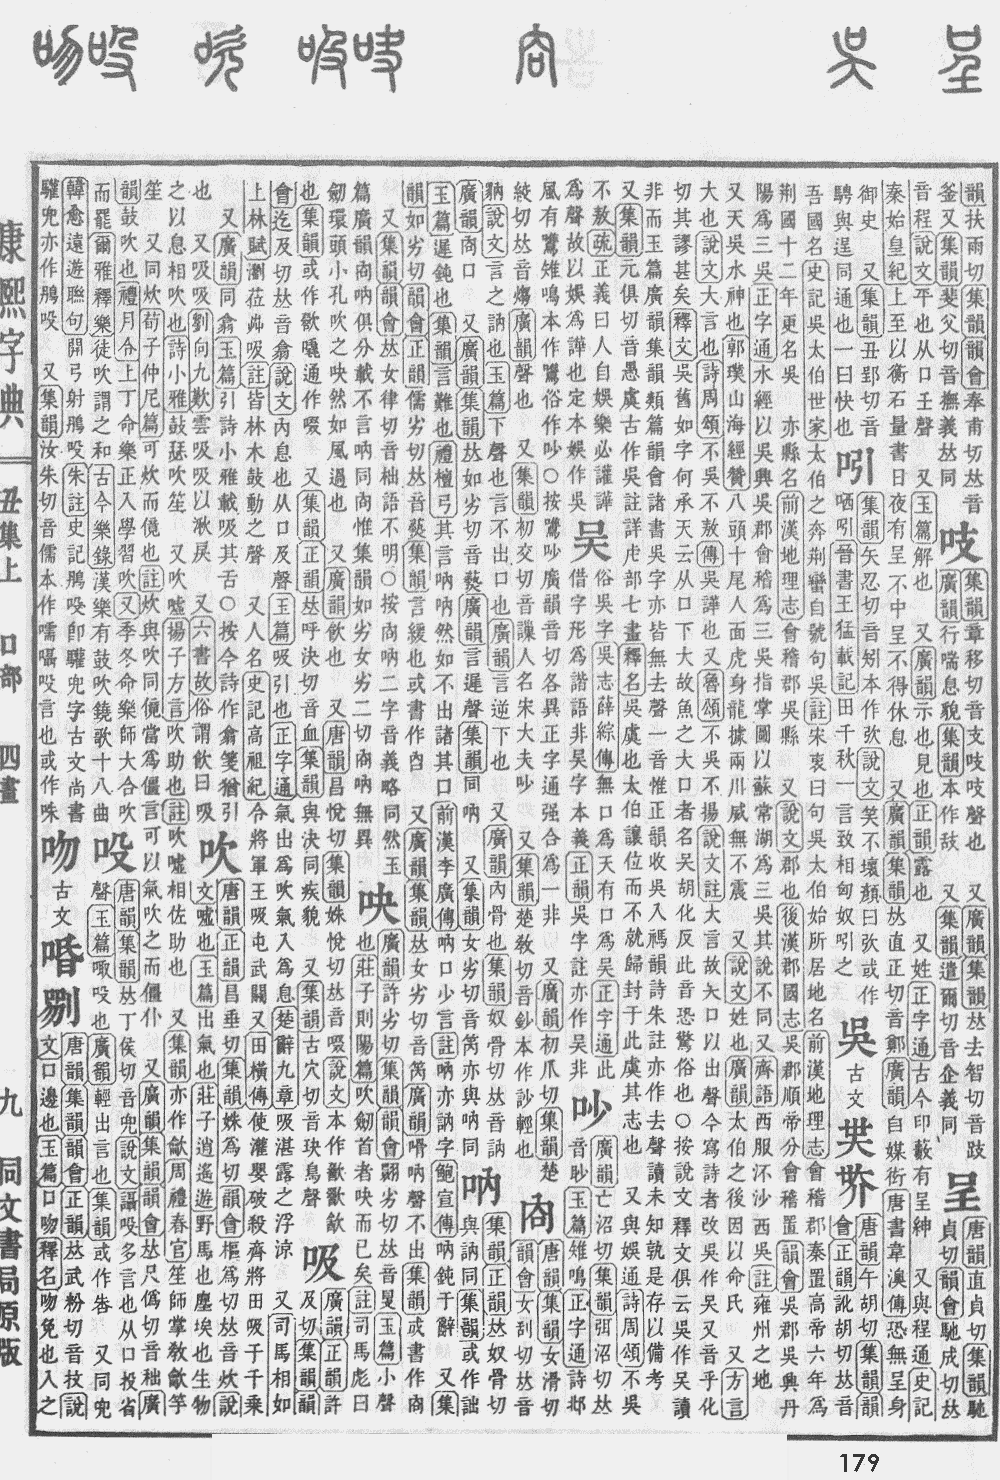 韻扶雨切集韻韻會奉甫切𠀤音
釜又集韻斐父切音撫義𠀤同
吱
集韻章移切音支吱吱聲也 又廣韻集韻𠀤去智切音跂
廣韻行喘息貌集韻本作𢻃 又集韻遣爾切音企義同
呈
唐韻直貞切集韻馳
貞切韻會馳成切𠀤
音程說文平也从口壬聲 又玉篇解也 又廣韻示也見也正韻露也 又姓正字通古今印藪有呈紳 又與程通史記
秦始皇紀上至以衡石量書日夜有呈不中呈不得休息 又廣韻集韻𠀤直正切音鄭廣韻自媒衒唐書韋澳傳恐無呈身
御史 又集韻丑郢切音
騁與逞同通也一曰快也
吲
集韻矢忍切音矧本作弞說文笑不壞顏曰弞或作
哂吲晉書王猛載記田千秋一言致相匈奴吲之
吳
古文
㕦𡗾
唐韻午胡切集韻韻
會正韻訛胡切𠀤音
吾國名史記吳太伯世家太伯之奔荆蠻自號句吳註宋衷曰句吳太伯始所居地名前漢地理志會稽郡秦置高帝六年爲
荆國十二年更名吳 亦縣名前漢地理志會稽郡吳縣 又說文郡也後漢郡國志吳郡順帝分會稽置韻會吳郡吳興丹
陽爲三吳正字通水經以吳興吳郡會稽爲三吳指掌圖以蘇常湖爲三吳其說不同又齊語西服流沙西吳註雍州之地
又天吳水神也郭璞山海經贊八頭十尾人面虎身龍據兩川威無不震 又說文姓也廣韻太伯之後因以命氏 又方言
大也說文大言也詩周頌不吳不敖傳吳譁也又魯頌不吳不揚說文註大言故夨口以出聲今寫詩者改吳作吴又音乎化
切其謬甚矣釋文吳舊如字何承天云从口下大故魚之大口者名吴胡化反此音恐驚俗也○按說文釋文俱云吳作吴讀
非而玉篇廣韻集韻類篇韻會諸書吳字亦皆無去聲一音惟正韻收吳入禡韻詩朱註亦作去聲讀未知孰是存以備考
又集韻元俱切音愚虞古作吳註詳虍部七畫釋名吳虞也太伯讓位而不就歸封于此虞其志也 又與娛通詩周頌不吳
不敖疏正義曰人自娛樂必讙譁
爲聲故以娛爲譁也定本娛作吳
吴
俗吳字吳志薛綜傳無口爲天有口爲吳正字通此
借字形爲諧語非吳字本義正韻吳字註亦作吴非
吵
廣韻亡沼切集韻弭沼切𠀤
音眇玉篇雉鳴正字通詩邶
風有鷕雉鳴本作鷕俗作吵○按鷕吵廣韻音切各異正字通强合爲一非 又廣韻初爪切集韻楚
絞切𠀤音煼廣韻聲也 又集韻初交切音謙人名宋大夫吵 又集韻楚敎切音鈔本作訬輕也
㕯
唐韻集韻女滑切
韻會女刮切𠀤音
豽說文言之訥也玉篇下聲也言不出口也廣韻言逆下也 又廣韻內骨也集韻奴骨切𠀤音訥
廣韻㕯口 又廣韻集韻𠀤如劣切音爇廣韻言遲聲集韻同吶 又集韻女劣切音笍亦與吶同
吶
集韻正韻𠀤奴骨切
與訥同集韻或作詘
玉篇遲鈍也集韻言難也禮檀弓其言吶吶然如不出諸其口前漢李廣傳吶口少言註吶亦訥字鮑宣傳吶鈍于辭 又集
韻如劣切韻會正韻儒劣切𠀤音爇集韻言緩也或書作㕯 又廣韻集韻𠀤女劣切音笍廣韻㗘吶聲不出集韻或書作㕯
又集韻韻會𠀤女律切音柮語不明○按㕯吶二字音義略同然玉
篇廣韻㕯吶俱分載不言吶同㕯惟集韻如劣女劣二切㕯吶無異
吷
廣韻許劣切集韻韻會翾劣切𠀤音旻玉篇小聲
也莊子則陽篇吹劒首者吷而已矣註司馬彪曰
劒環頭小孔吹之吷然如風過也 又廣韻飮也 又唐韻昌悅切集韻姝悅切𠀤音啜說文本作歠歠㱃
也集韻或作嘬通作啜 又集韻正韻𠀤呼決切音血集韻與決同疾貌 又集韻古穴切音玦鳥聲
吸
廣韻正韻許
及切集韻韻
會迄及切𠀤音翕說文內息也从口及聲玉篇吸引也正字通氣出爲吹氣入爲息楚辭九章吸湛露之浮涼 又司馬相如
上林賦瀏莅芔吸註皆林木鼓動之聲 又人名史記高祖紀令將軍王吸屯武關又田橫傳使灌嬰破殺齊將田吸于千乗
又廣韻同翕玉篇引詩小雅載吸其舌○按今詩作翕箋猶引
也 又吸吸劉向九歎雲吸吸以湫戾 又六書故俗謂飮曰吸
吹
唐韻正韻昌垂切集韻姝爲切韻會樞爲切𠀤音炊說
文噓也玉篇出氣也莊子逍遙遊野馬也塵埃也生物
之以息相吹也詩小雅鼓瑟吹笙 又吹噓揚子方言吹助也註吹噓相佐助也 又集韻亦作龡周禮春官笙師掌敎龡竽
笙 又同炊荀子仲尼篇可炊而僵也註炊與吹同僵當爲僵言可以氣吹之而僵仆 又廣韻集韻韻會𠀤尺僞切音廣
韻鼓吹也禮月令上丁命樂正入學習吹又季冬命樂師大合吹
而罷爾雅釋樂徒吹謂之和古今樂錄漢樂有鼓吹鐃歌十八曲
吺
唐韻集韻𠀤丁侯切音兜說文讘吺多言也从口投省
聲玉篇吺也廣韻輕出言也集韻或作 又同兜
韓愈遠遊聯句開弓射鴅吺朱註史記鴅吺卽驩兜字古文尚書
驩兜亦作鴅吺 又集韻汝朱切音儒本作嚅囁吺言也或作咮
吻
古文
㖧𠛬
唐韻集韻韻會正韻𠀤武粉切音抆說
文口邊也玉篇口吻釋名吻免也入之
康熙字典 丑集上 口部 四畫 九 同文書局原版
179